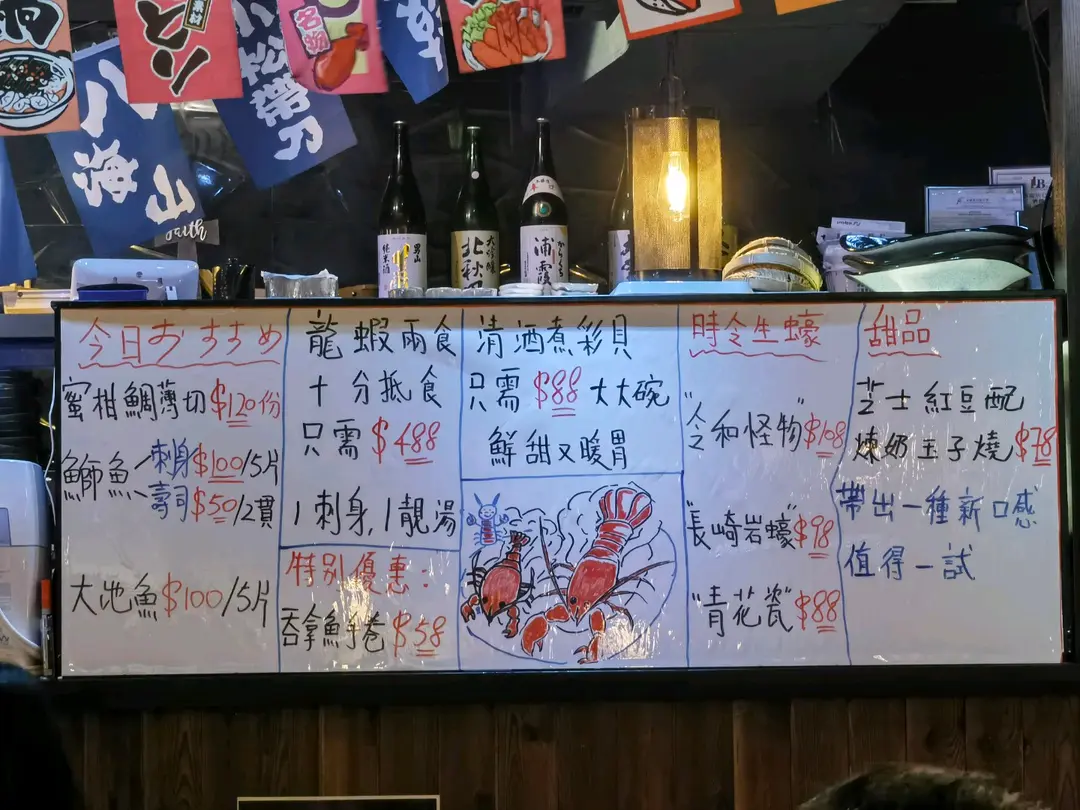 八海山
小松帶刀
名物
男山
純米酒
大吟釀
北秋田
浦霞
からくち
Faith
今日おすすめ
蜜柑鯛薄切$120份
鰤魚
刺身$100/5片
壽司$50/2貫
大池魚$100/5片
龍蝦兩食
十分抵食
只需$488
1刺身,1靚湯
特別優惠:
吞拿魚手卷$58
清酒煮彩貝
只需$88大大碗
鮮甜又暖胃
時令生蠔
"令和怪物"$108
"長崎岩蠔"$98
"青花瓷"$88
甜品
芝士紅豆配
煉奶玉子燒$78
帶出一種新口感
值得一試